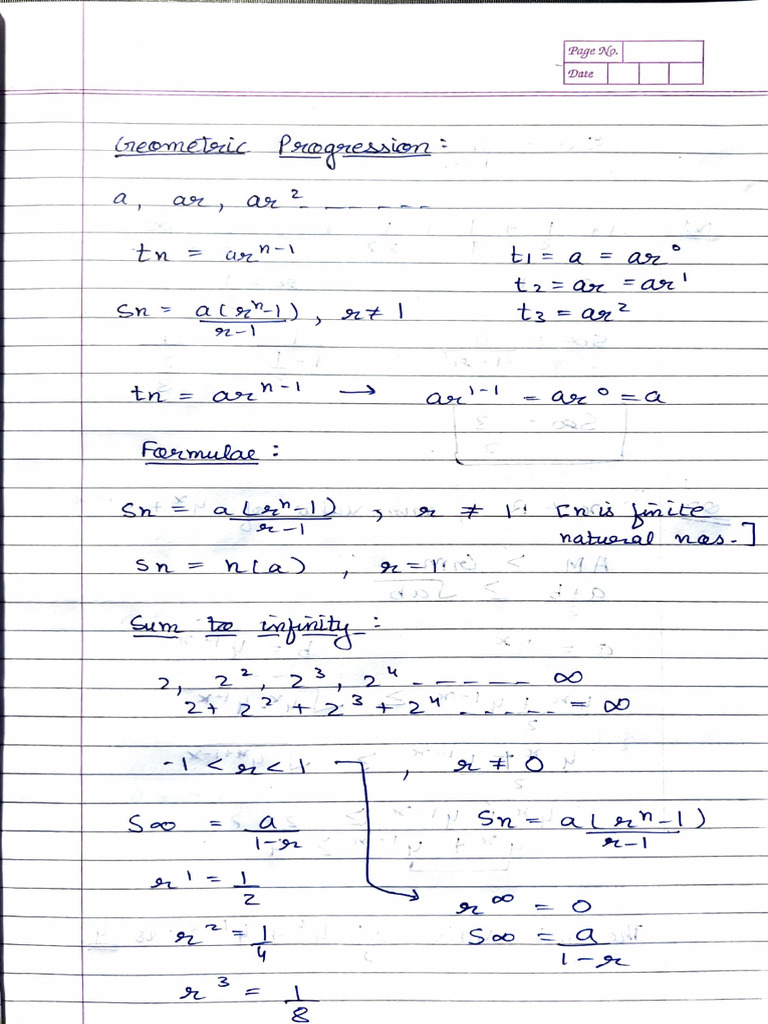 Page No.
Date
Geometric Progression:
a, ar, ar² - - - - - -
tn = arⁿ⁻¹
t1 = a = ar⁰
t2 = ar = ar¹
Sn = a(rⁿ-1)/r-1 , r ≠ 1
t3 = ar²
tn = arⁿ⁻¹ → ar¹⁻¹ = ar⁰ = a
Formulae:
Sn = a(rⁿ-1)/r-1 , r ≠ 1 [n is finite
natural nos.]
Sn = n(a) , r=1
Sum to infinity:
2, 2², 2³, 2⁴ - - - - - - ∞
2 + 2² + 2³ + 2⁴ - - - - - = ∞
-1 < r < 1 , r ≠ 0
S∞ = a/1-r
Sn = a(rⁿ-1)/r-1
r¹ = 1/2
r^∞ = 0
r² = 1/4
S∞ = a/1-r
r³ = 1/8